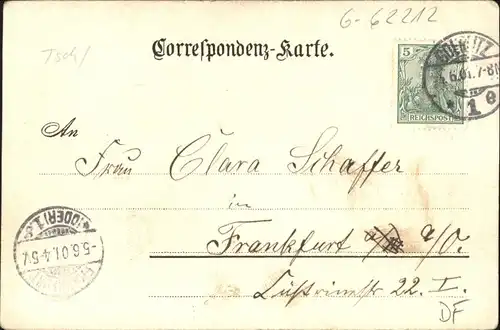 6-62212
Tsch/
Correspondenz-Karte.
5
REICHSPOST
GOERLITZ
4.6.01.7-8N
* 1 e
An
Frau Clara Schaffer
in
Frankfurt a/O.
(ODER) 1.
-5.6.01.4-5V.
22. I.
DF